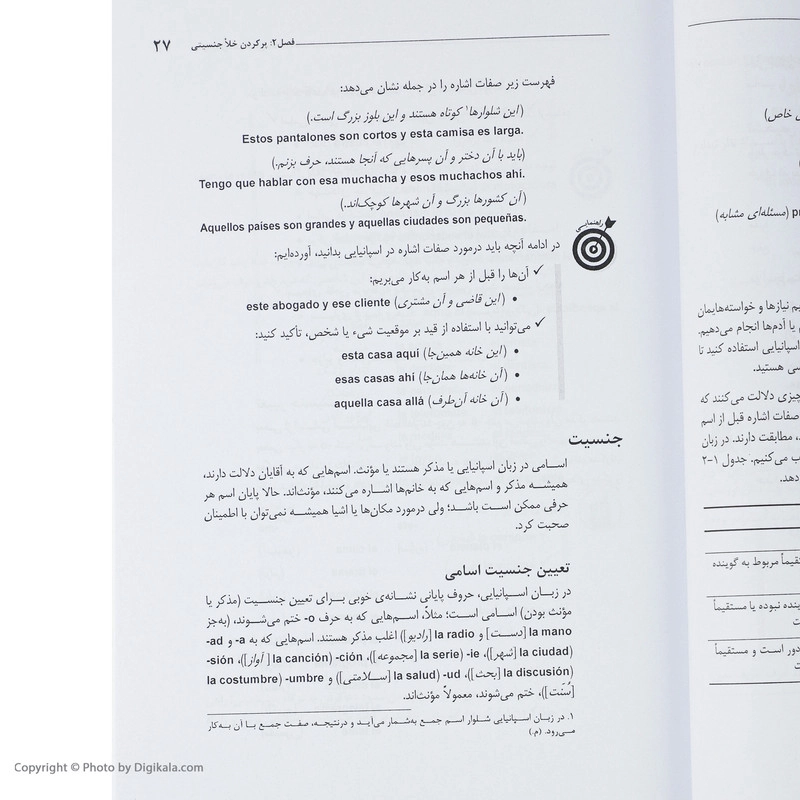 ۲۷ فصل ۲: پرکردن خلأ جنسیتی
فهرست زیر صفات اشاره را در جمله نشان می‌دهد:
(این شلوارها۱ کوتاه هستند و این بلوز بزرگ است.)
Estos pantalones son cortos y esta camisa es larga.
(باید با آن دختر و آن پسرهایی که آنجا هستند، حرف بزنم.)
Tengo que hablar con esa muchacha y esos muchachos ahí.
(آن کشورها بزرگ و آن شهرها کوچک‌اند.)
Aquellos países son grandes y aquellas ciudades son pequeñas.
راهنمایی
در ادامه آنچه باید درمورد صفات اشاره در اسپانیایی بدانید، آورده‌ایم:
✓ آن‌ها را قبل از هر اسم به‌کار می‌بریم:
• (این قاضی و آن مشتری) este abogado y ese cliente
✓ می‌توانید با استفاده از قید بر موقعیت شیء یا شخص، تأکید کنید:
• (این خانه همین‌جا) esta casa aquí
• (آن خانه‌ها همان‌جا) esas casas ahí
• (آن خانه آن‌طرف) aquella casa allá
جنسیت
اسامی در زبان اسپانیایی یا مذکر هستند یا مؤنث. اسم‌هایی که به آقایان دلالت دارند،
همیشه مذکر و اسم‌هایی که به خانم‌ها اشاره می‌کنند، مؤنث‌اند. حالا پایان اسم هر
حرفی ممکن است باشد؛ ولی درمورد مکان‌ها یا اشیا همیشه نمی‌توان با اطمینان
صحبت کرد.
تعیین جنسیت اسامی
در زبان اسپانیایی، حروف پایانی نشانه‌ی خوبی برای تعیین جنسیت (مذکر یا
مؤنث بودن) اسامی است؛ مثلاً، اسم‌هایی که به حرف o- ختم می‌شوند، (به‌جز
la mano [دست] و la radio [رادیو]) اغلب مذکر هستند. اسم‌هایی که به a- و ad-
(la ciudad [شهر])، ie- (la serie [مجموعه])، ción- (la canción [آواز])، sión-
(la discusión [بحث])، ud- (la salud [سلامتی]) و umbre- (la costumbre
[سُنّت])، ختم می‌شوند، معمولاً مؤنث‌اند.
۱. در زبان اسپانیایی شلوار اسم جمع به‌شمار می‌آید و درنتیجه، صفت جمع با آن به‌کار
می‌رود. (م.)
خاص)
(مسئله‌ای مشابه)
نیازها و خواسته‌هایمان
یا آدم‌ها انجام می‌دهیم.
اسپانیایی استفاده کنید تا
هستید.
چیزی دلالت می‌کنند که
صفات اشاره قبل از اسم
مطابقت دارند. در زبان
می‌کنیم. جدول ۱-۲
مربوط به گوینده
نبوده یا مستقیماً
دور است و مستقیماً
Copyright © Photo by Digikala.com